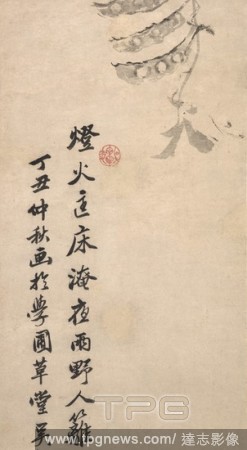 燈火匡床淹夜雨野人籬
丁丑仲秋画於學圃草堂吳
TPG
www.tpgnews.com / 達志影像